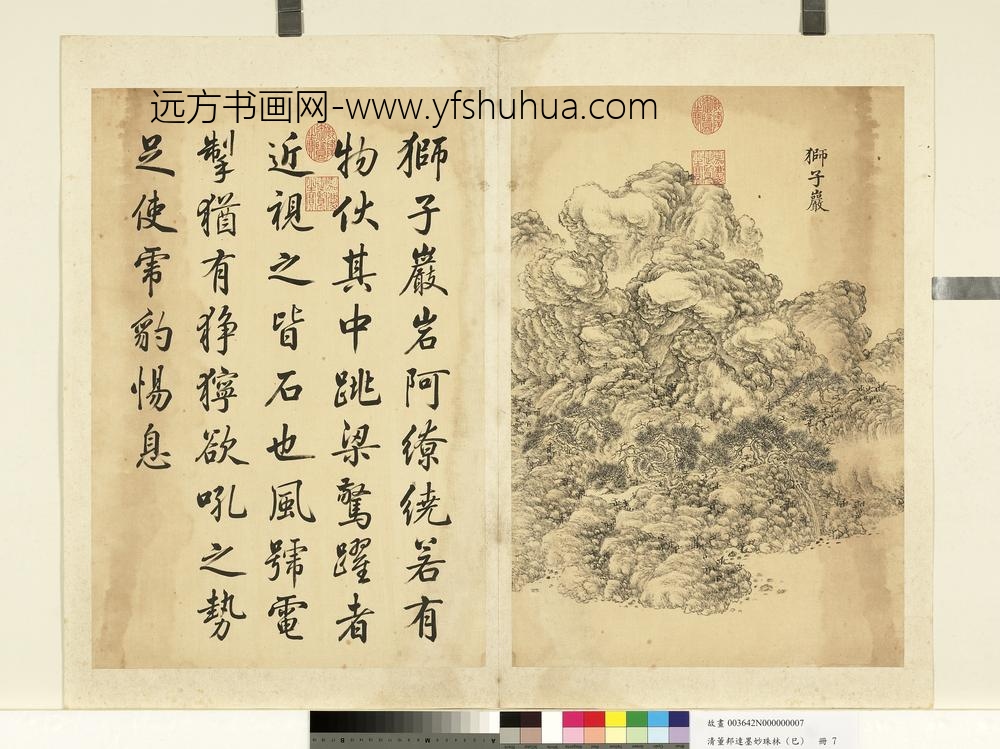 远方书画网-www.yfshuhua.com
獅子巖
獅子巖岩阿繚繞若有
物伏其中跳梁驚躍者
近視之皆石也風號電
掣猶有猙獰欲吼之勢
足使虎豹惕息
故畫 003642N000000007
清董邦達墨妙珠林（巳） 冊 7